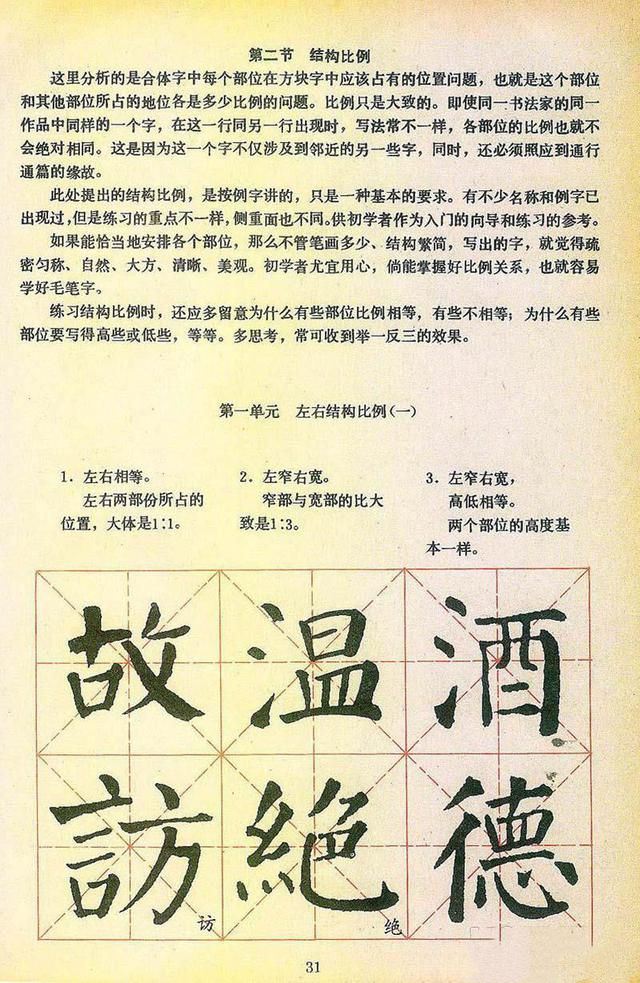 第二节 结构比例
这里分析的是合体字中每个部位在方块字中应该占有的位置问题，也就是这个部位
和其他部位所占的地位各是多少比例的问题。比例只是大致的。即使同一书法家的同一
作品中同样的一个字，在这一行同另一行出现时，写法常不一样，各部位的比例也就不
会绝对相同。这是因为这一个字不仅涉及到邻近的另一些字，同时，还必须照应到通行
通篇的缘故。
此处提出的结构比例，是按例字讲的，只是一种基本的要求。有不少名称和例字已
出现过，但是练习的重点不一样，侧重面也不同。供初学者作为入门的向导和练习的参考。
如果能恰当地安排各个部位，那么不管笔画多少、结构繁简，写出的字，就觉得疏
密匀称、自然、大方、清晰、美观。初学者尤宜用心，倘能掌握好比例关系，也就容易
学好毛笔字。
练习结构比例时，还应多留意为什么有些部位比例相等，有些不相等；为什么有些
部位要写得高些或低些，等等。多思考，常可收到举一反三的效果。
第一单元 左右结构比例（一）
1．左右相等。
左右两部份所占的
位置，大体是1∶1。
2．左窄右宽。
窄部与宽部的比大
致是1∶3。
3．左窄右宽，
高低相等。
两个部位的高度基
本一样。
故 温 酒
訪 絕 德
访 绝
31